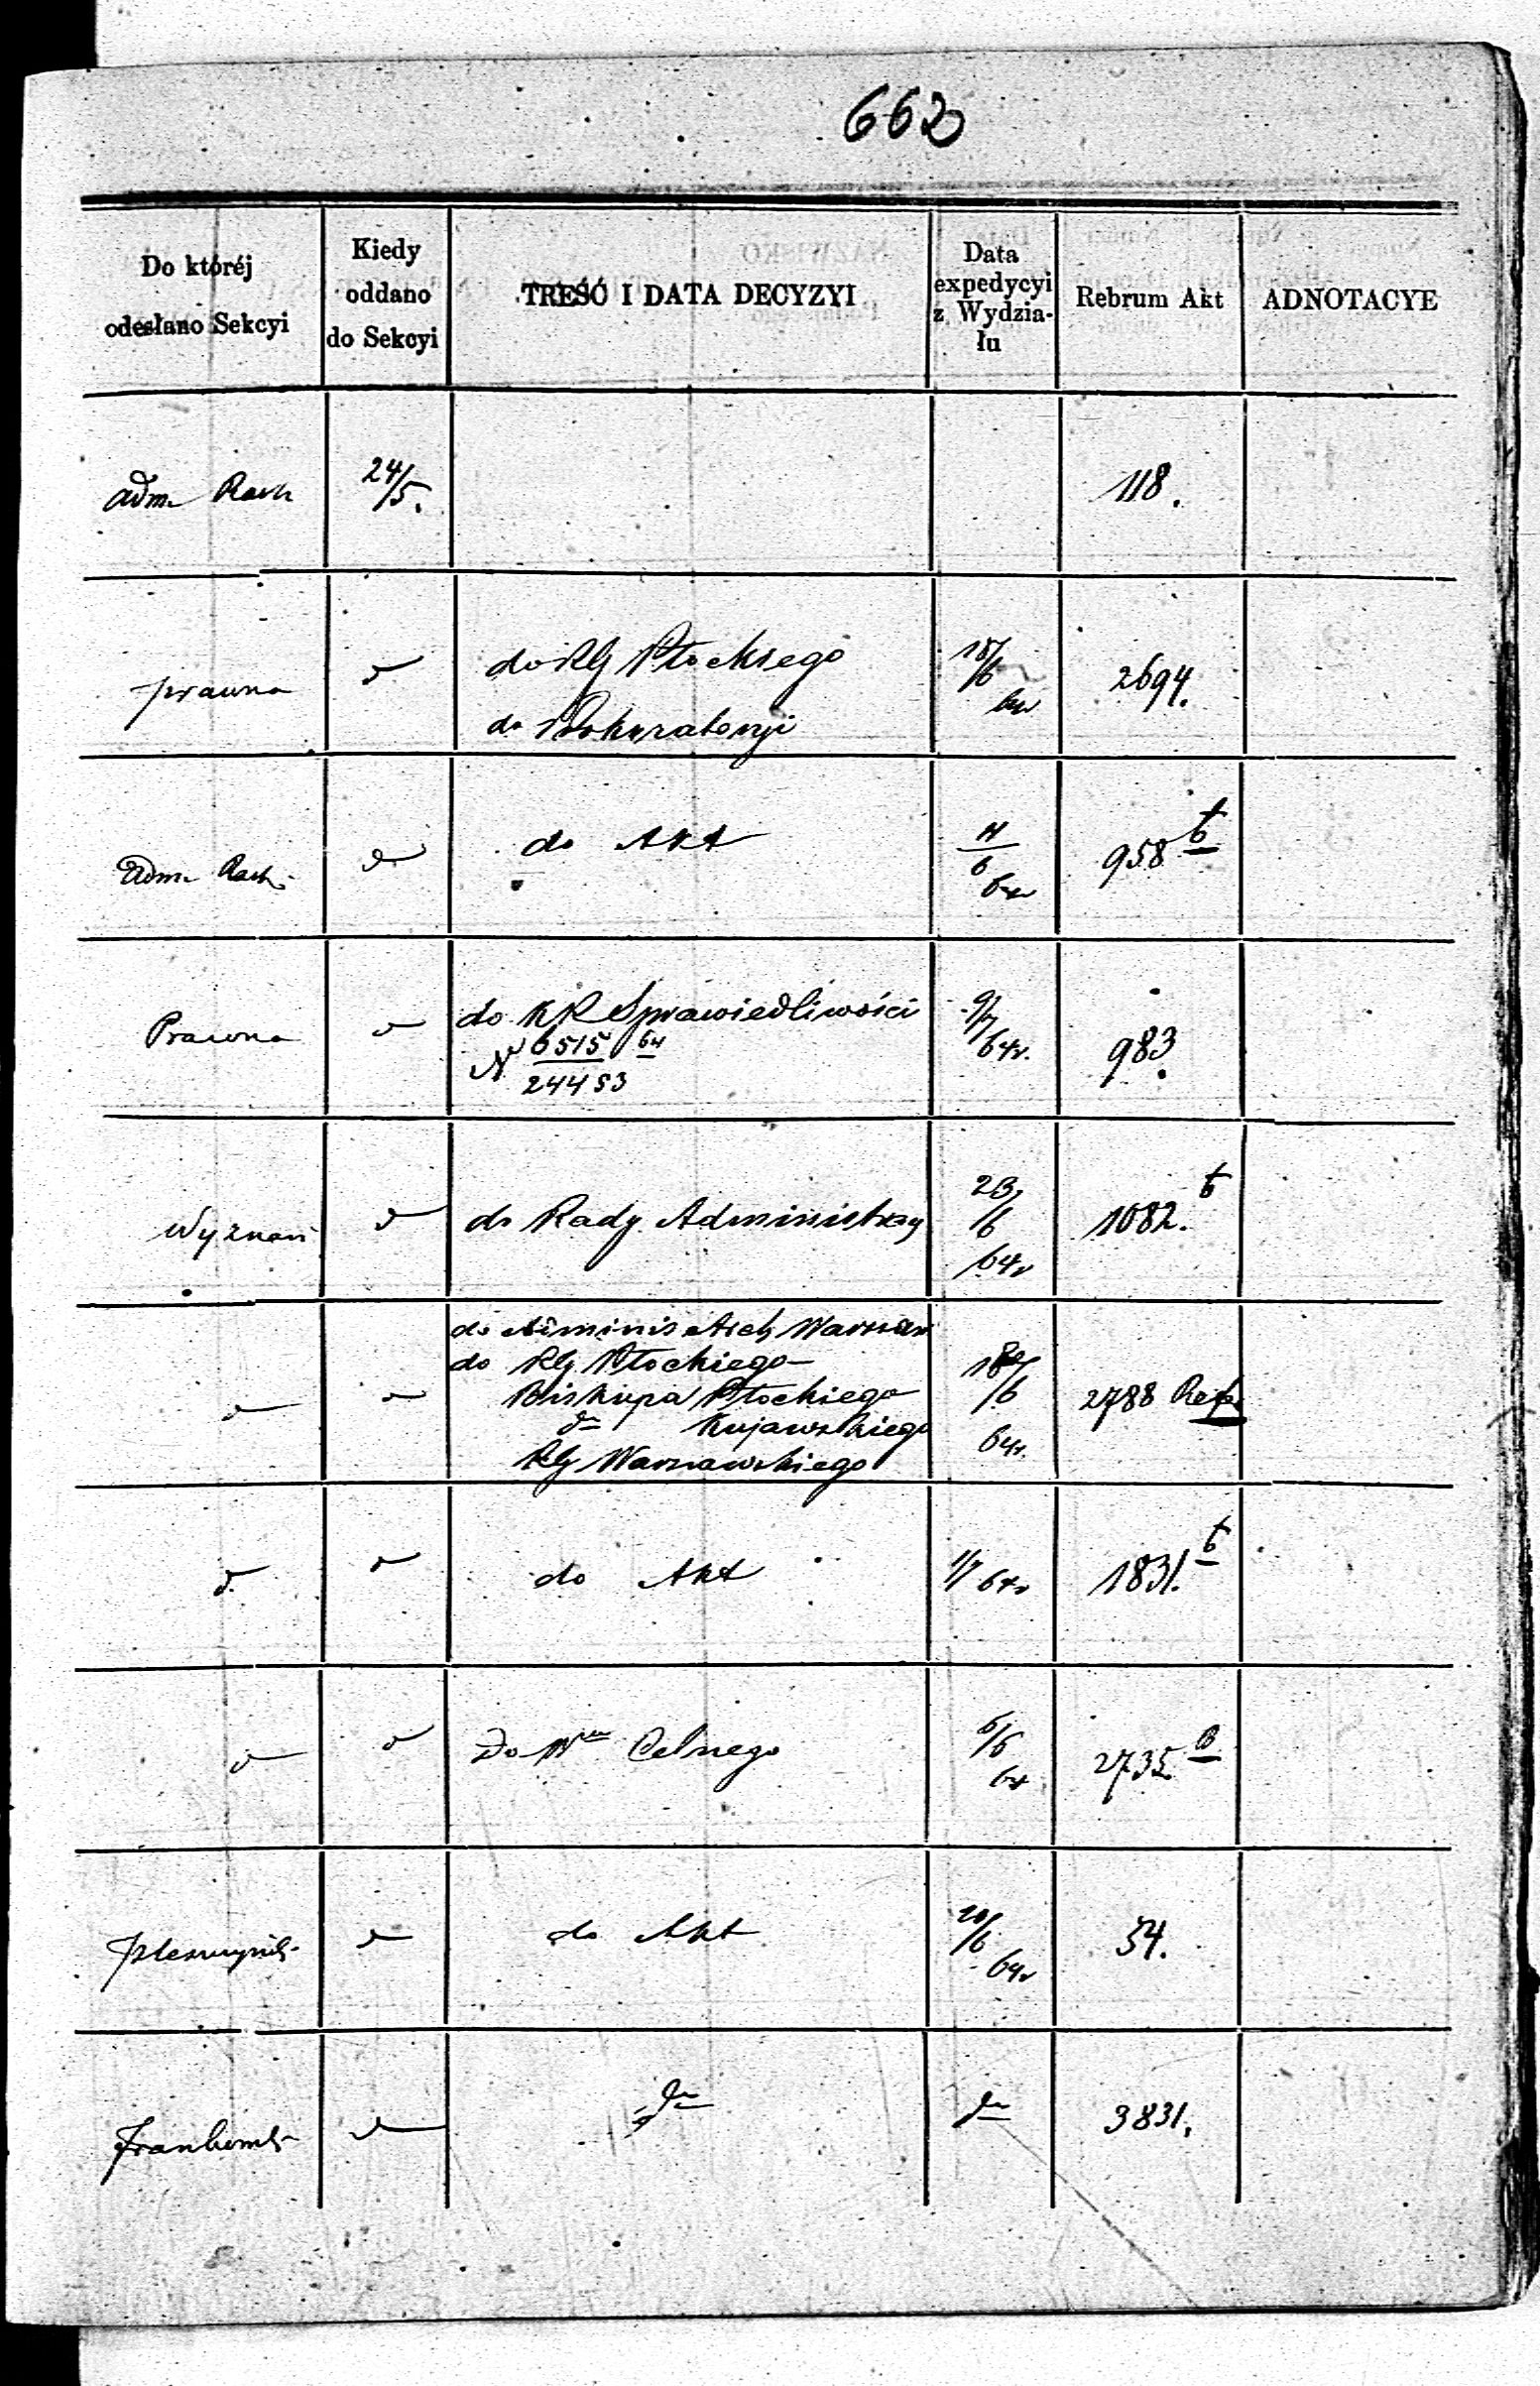 662
Do któréj odesłano Sekcyi
Kiedy oddano do Sekcyi
TREŚĆ I DATA DECYZYI
Data expedycyi z Wydziału
Rebrum Akt
ADNOTACYE
Adm. Rach 24/5. 118.
prawna do RG Płockiego
do Prokuratoryi
18/6 64r 2694.
Adm. Rach. do Akt 11/6 64r 958 b
Prawna do KR Sprawiedliwości
N 6515/24453 64
9/7 64r. 983.
Wyznań do Rady Administracy 23/6 64r 1082. b
do Adminis Arch Warszaw
do RG Płockiego
Biskupa Płockiego
do Kujawskiego
RG Warszawskiego
6 64r. 2788 Refer
d. do Akt 1/7 64r 1831. b
Do Wu Celnego 6/6 64 2735 B
do Akt 6 64r 54.
do do 3831.